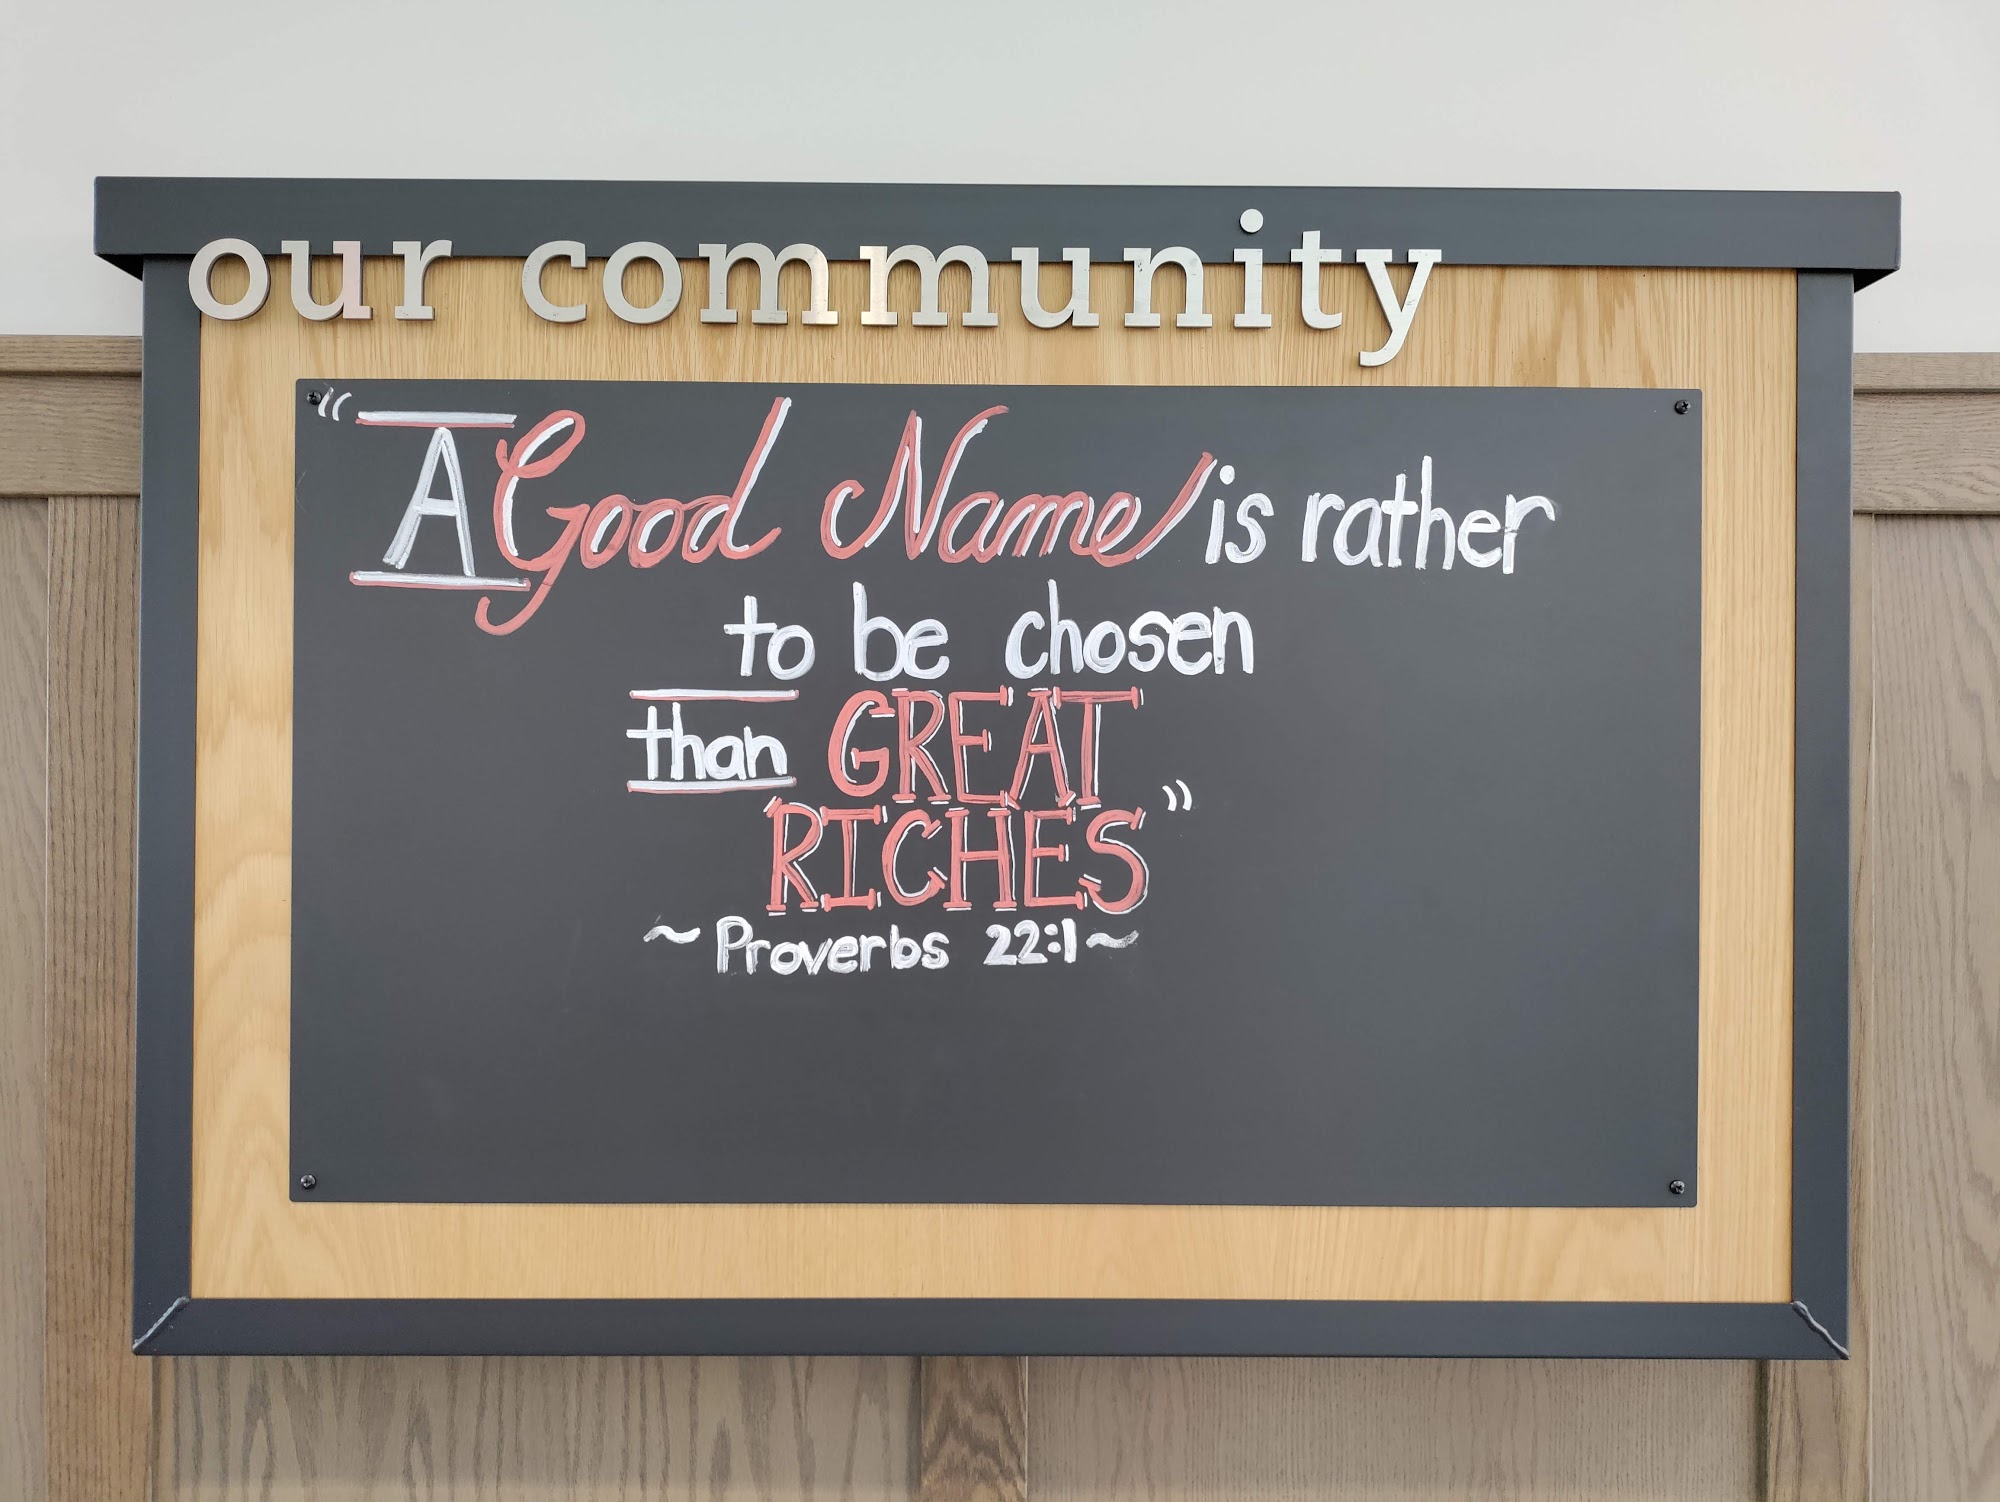 our community
"A Good Name is rather
to be chosen
than GREAT
RICHES"
~Proverbs 22:1~